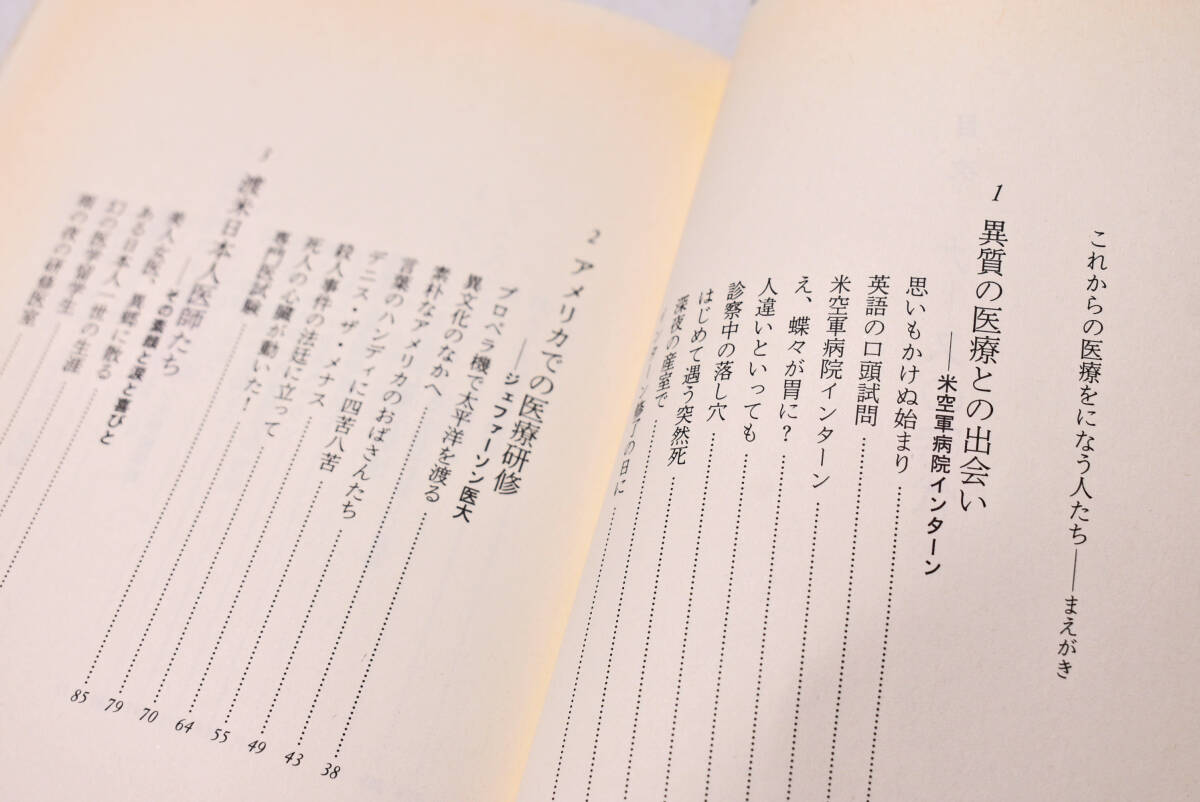 これからの医療をになう人たち――まえがき
1 異質の医療との出会い
――米空軍病院インターン
思いもかけぬ始まり
英語の口頭試問
米空軍病院インターン
え、蝶々が胃に?
人違いといっても
診察中の落し穴
はじめて遇う突然死
深夜の産室で
インターン修了の日に
2 アメリカでの医療研修
――ジェファーソン医大
プロペラ機で太平洋を渡る 38
異文化のなかへ 43
素朴なアメリカのおばさんたち 49
言葉のハンディに四苦八苦 55
デニス・ザ・メナス 64
殺人事件の法廷に立って 70
死人の心臓が動いた! 79
専門医試験 85
3 渡米日本人医師たち
――その素顔と涙と喜びと
美人女医、異郷に散る
ある日本人一世の生涯
幻の医学留学生
雨の夜の研修医室